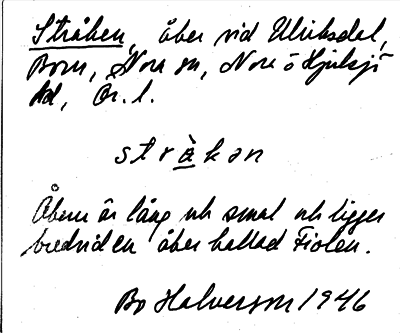 Stråken, åker vid Ulriksdal,
Born, Nora sn, Nora o Hjulsjö
hd, Ör. l.
strà̱kən
Åkern är lång och smal och ligger
bredvid en åker kallad Fiolen.
Bo Halverson 1946